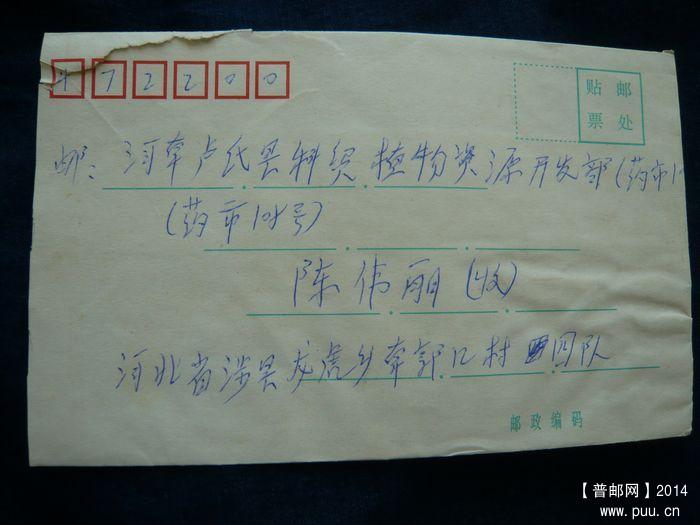 472200
贴 邮
票 处
邮:河南卢氏县科织植物资源开发部(药市1
(药市104号)
陈伟丽(收)
河北省涉县龙虎乡南郭口村四队
邮政编码
【普邮网】2014
www.puu.cn